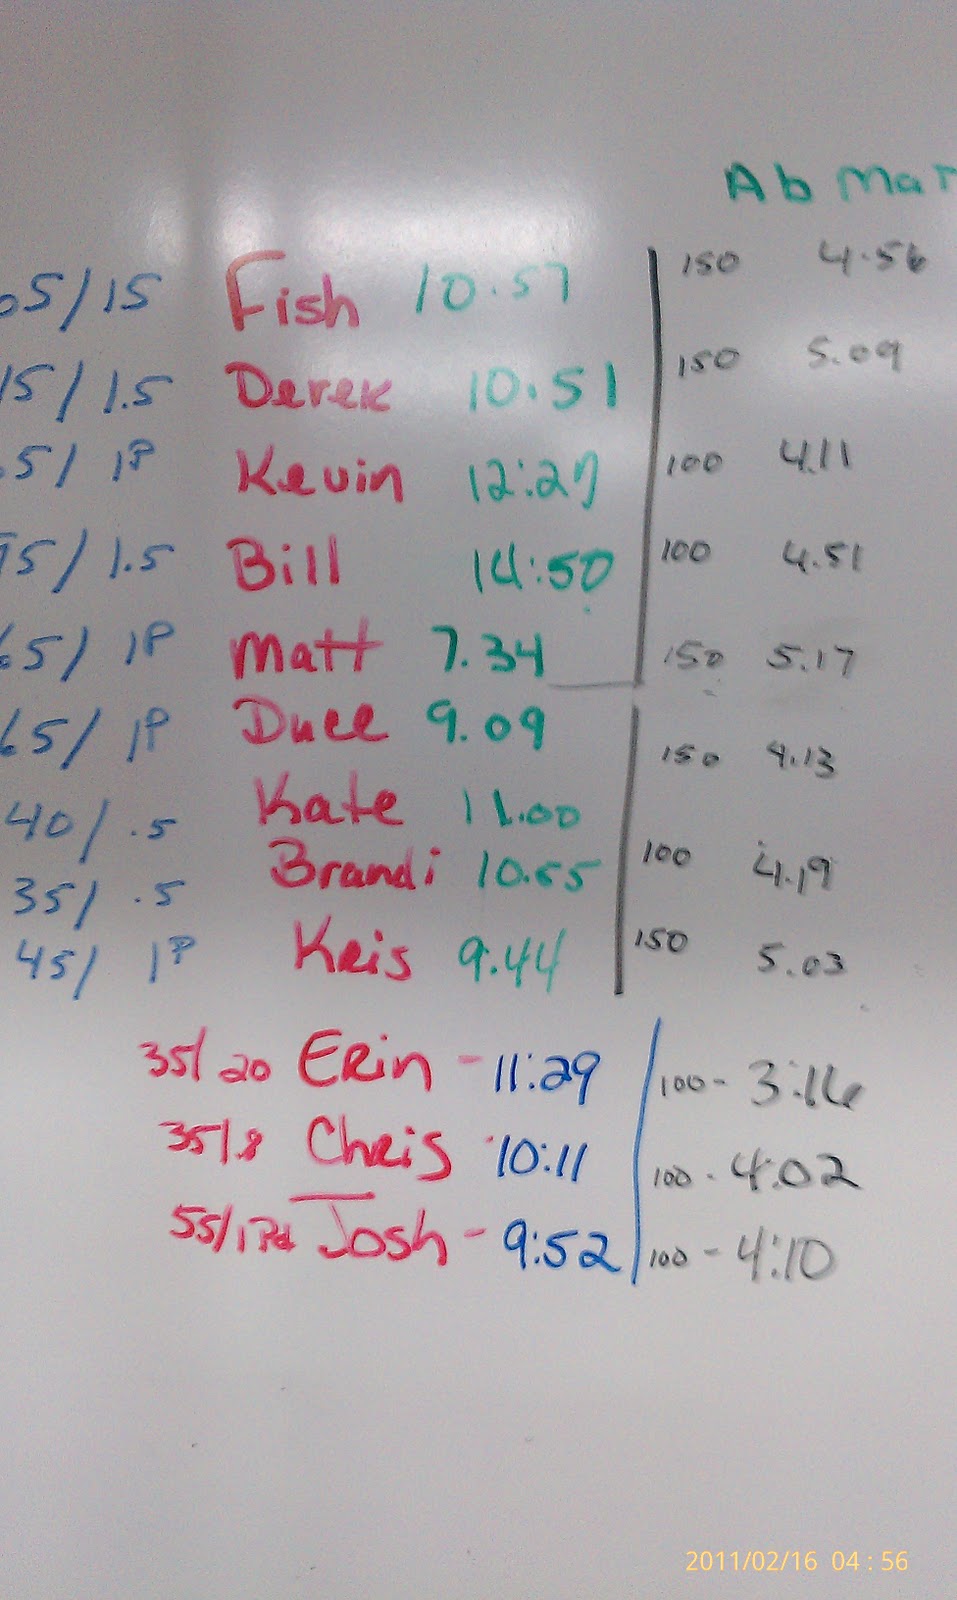 Ab Mat
05/15 Fish 10.57 150 4.56
15/1.5 Derek 10.51 150 5.09
5/1P Kevin 12:27 100 4.11
95/1.5 Bill 14:50 100 4.51
65/1P Matt 7.34 150 5.17
65/1P Duce 9.09 150 4.13
40/.5 Kate 11.00
35/.5 Brandi 10.55 100 4.19
45/1P Kris 9.44 150 5.03
35/20 Erin - 11:29 100 - 3:16
35/.8 Chris 10:11 100 - 4:02
55/1Pd Josh - 9:52 100 - 4:10
2011/02/16 04:56